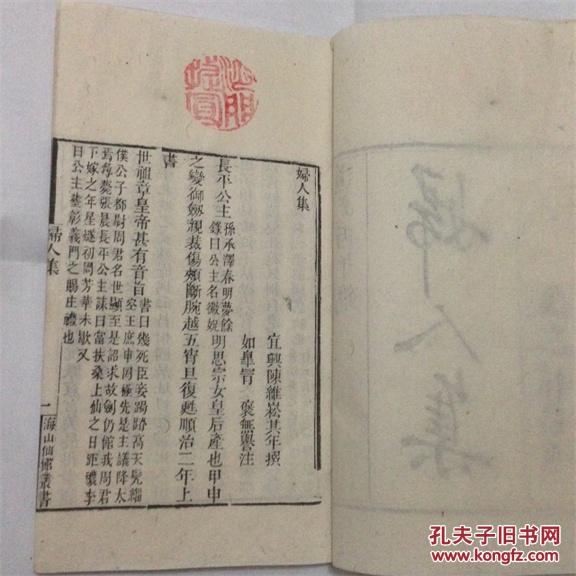 婦人集
宜興陳維崧其年撰
如臯冐　襃無譽注
長平公主 孫承澤春明夢餘
錄曰公主名徽娖 明思宗女皇后產也甲申
之變御劔親裁傷頰斷腕越五宵旦復甦順治二年上
書
世祖章皇帝甚有音旨 書曰幾死臣妾跼蹐高天髡緇
空王庶申罔極先是主議降太
僕公子都尉周君名世顯至是詔求故劍仍館我周君
焉 張晨長平公主誄曰富扶桑上仙之日距禮李
下嫁之年星燧初周芳華未歇又
曰公主塟彰義門之賜庄禮也
婦人集
一
海山仙館叢書
婦人集
孔夫子旧书网
www.kongfz.com